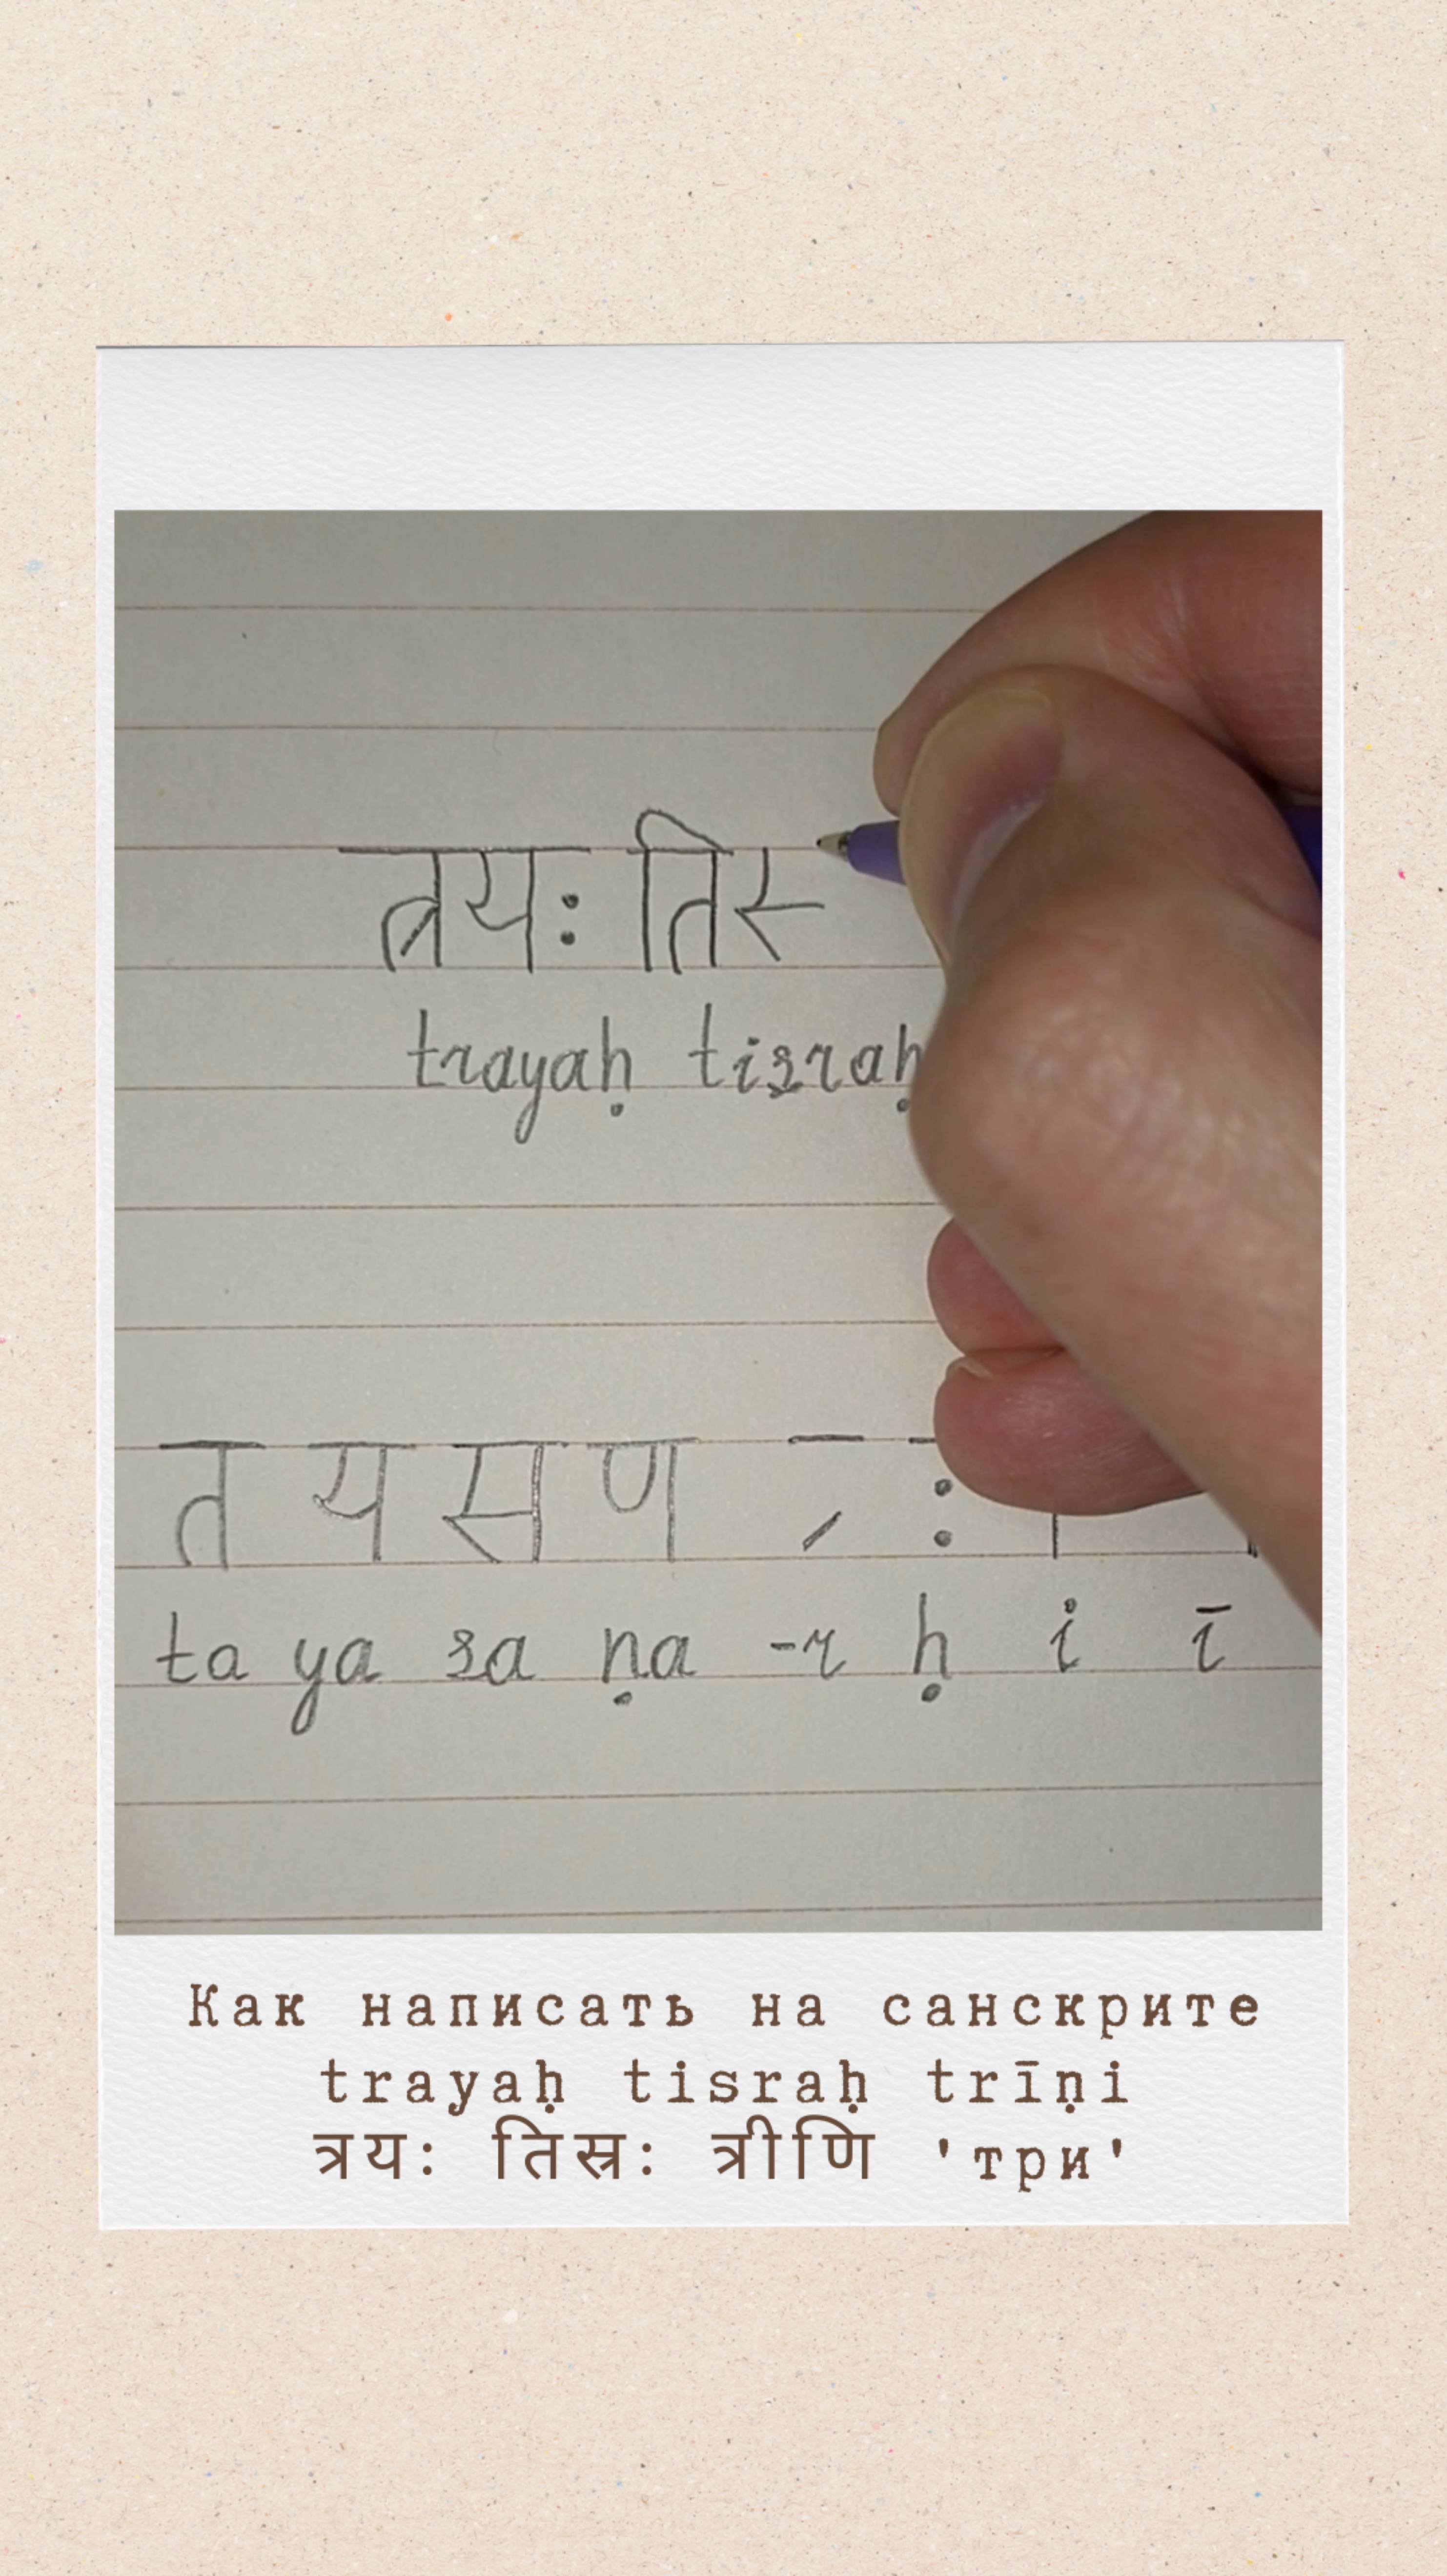 त्रयः तिस
trayaḥ tisraḥ
त य स ण ःि ी
ta ya sa ṇa -r ḥ i ī
Как написать на санскрите
trayaḥ tisraḥ trīṇi
त्रयः तिस्रः त्रीणि 'три'